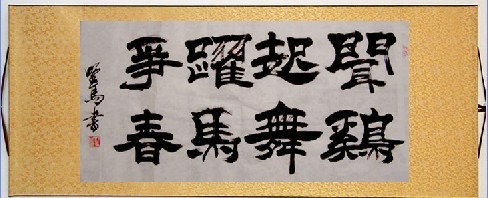 聞鷄
起舞
躍馬
爭春
馬書